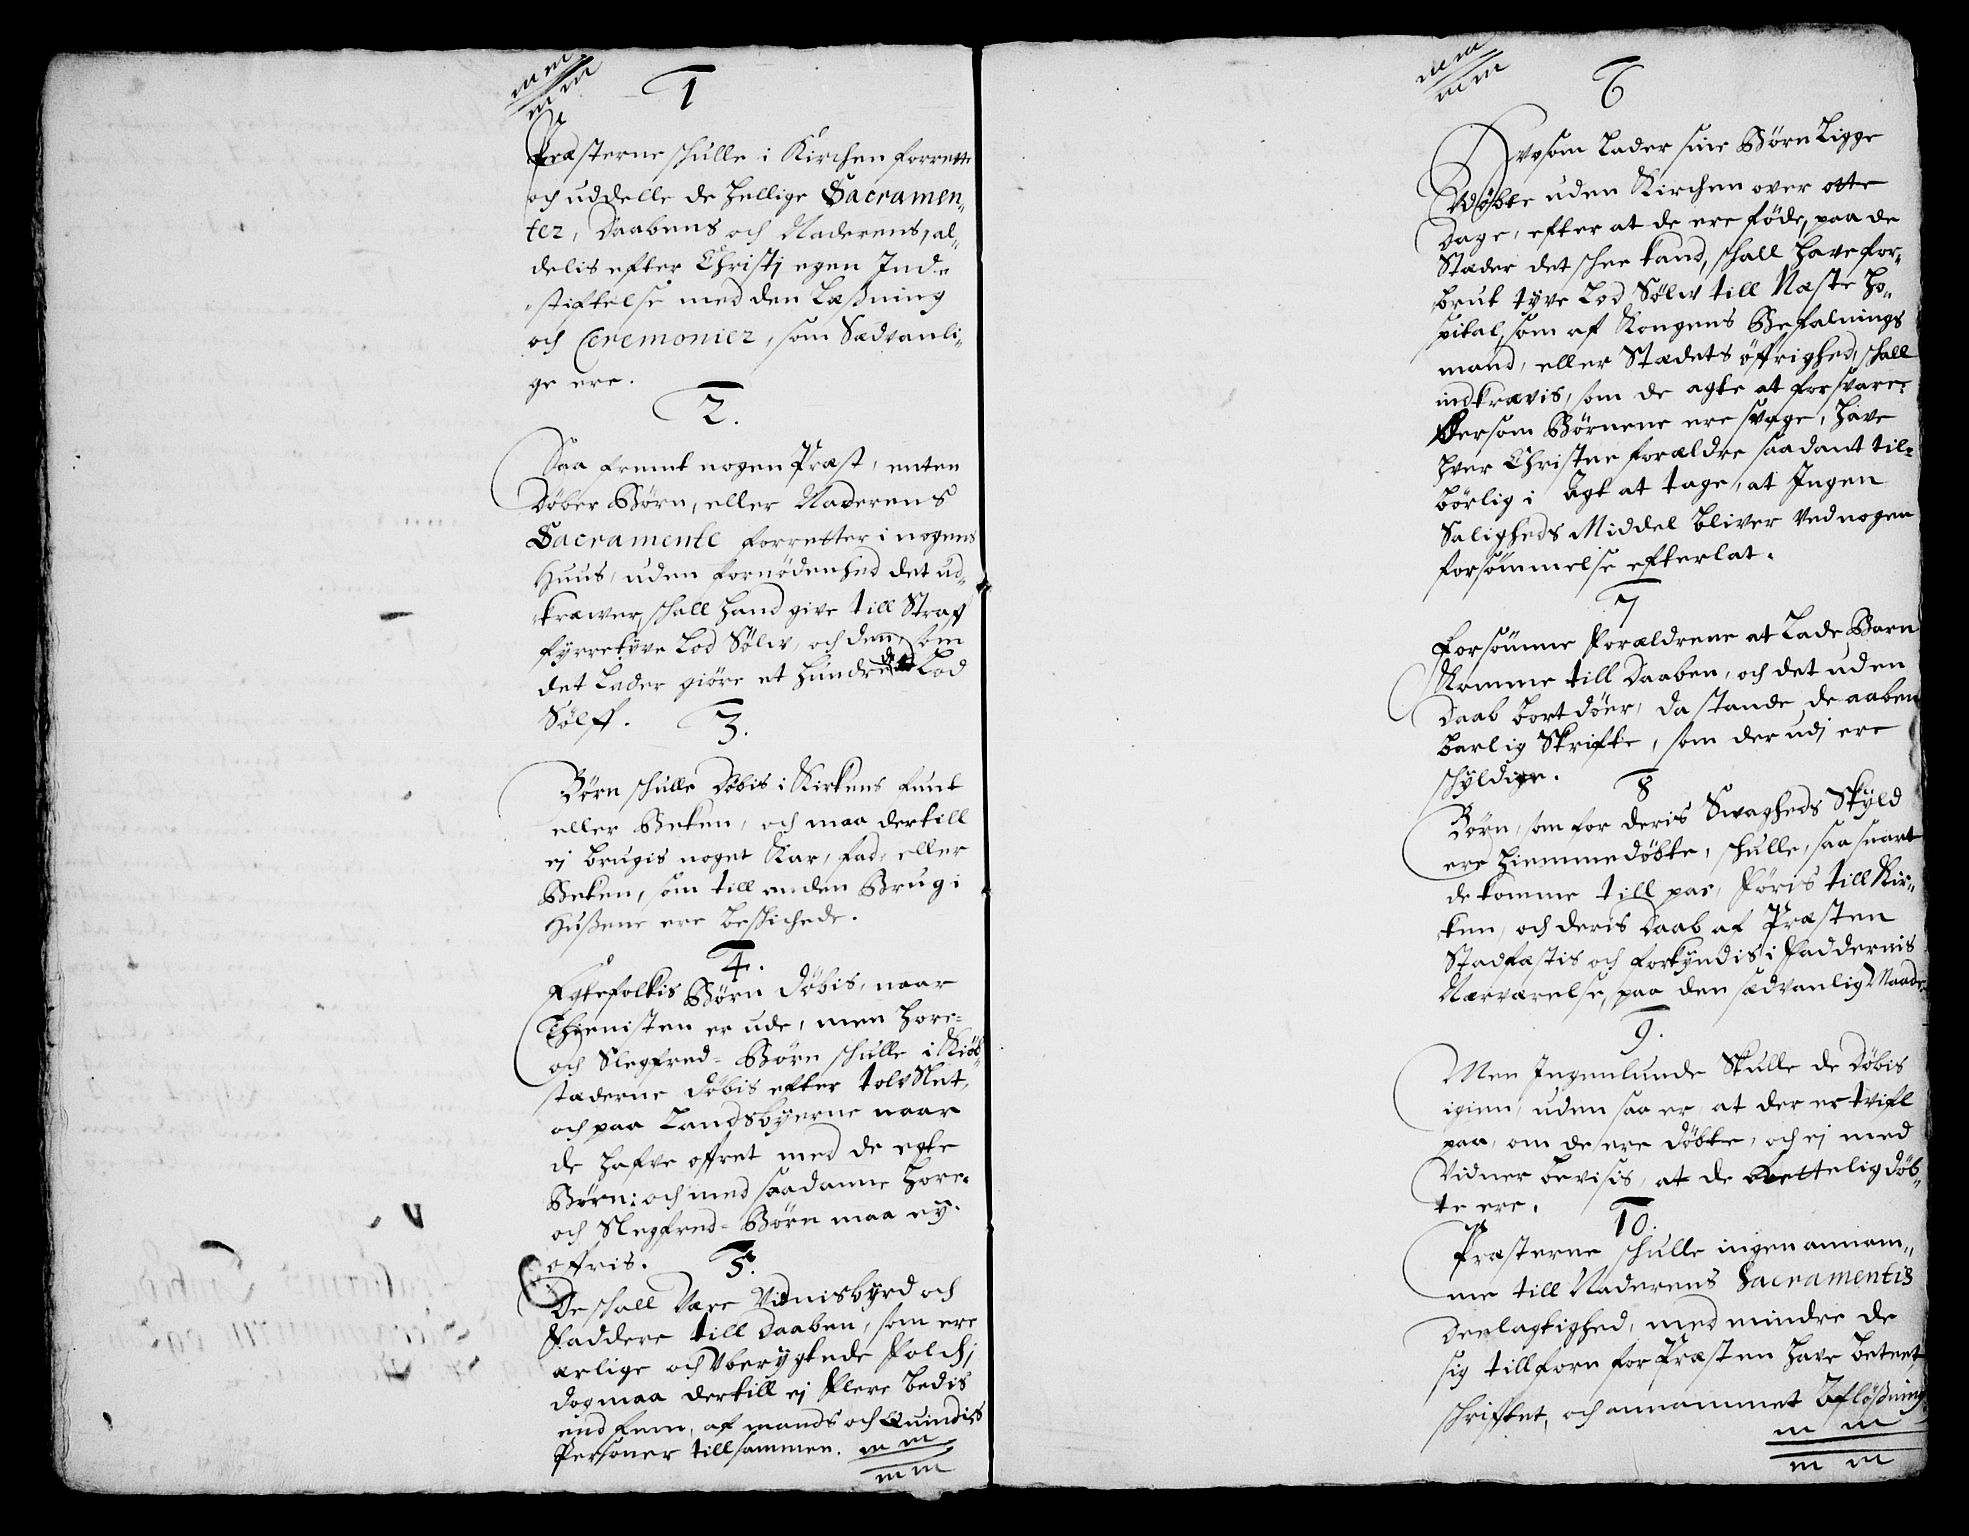 1
Præsterne skulle i Kirchen forrette
och uddelle de hellige Sacramen„
ter, Daabens och Naderens, al„
delis efter Christj egen Ind„
„stiftelse med den Læsning
och Ceremonier, som Sædvanli„
ge ere.
2.
Saa fremt nogen Præst, enten
Döber Börn, eller Naderens
Sacramente forretter i nogens
Huus, uden fornödenhed det ud„
kræwer, skall hand give till Straff
fyrretyve Lod Sölw, och den, som
det Lader giöre et hundrede Lod
Sölff.
3.
Börn schulle Döbis i Kirkens Funt
eller Beken, och maa dertill
ej brugis noget Kar, fad, eller
Beken, som till anden Brug i
Hussene ere beskichede.
4.
Egtefolkis Börn döbis, naar
Thienisten er ude, men Hore-
och Slegfred- Börn schulle i Kiöb„
stæderne döbis efter tolv Slet,
och paa Landsbÿerne naar
de hafve offret med de egte
Börn: och med saadanne Hore-
och Slegfred- Börn maa eÿ
offris.
5.
De skall være Vidnisbÿrd och
Faddere till Daaben, som ere
ærlige och Uberÿgtede Folch,
dog maa dertill ej flere bedis
end fem, af mands och Quindis
Personer tillsammen.
6
Hvo som Lader sine Börn Ligge
Udöbte uden Kirchen over otte
Dage, efter at de ere föde, paa de
Stæder det schee kand, skall have for„
brut tÿve Lod Sölw till Næste Ho„
spital, som af Kongens Befalnings
mand, eller Stædets öffrighed, skall
indkrævis, som de agte at forsvare:
Dersom Börnene ere svage, have
hver Christne forældre saadant til„
börlig i Agt at tage, at Ingen
Saligheds Middel bliver ved nogen
forsömmelse efterlat.
7
Forsömme Forældrene at Lade Barn
Komme till Daaben, och det uden
Daab bort döer, da stande de aaben
barlig Skrifte, som der udj ere
schÿldige.
8
Börn, som for deris Swagheds Skÿld
ere hiemmedöbte, schulle, saa snart
de komme till pas, föris till Kir„
ken, och deris Daab af Præsten
Stadfæstis och forkÿndis i Faddernis
Nærværelse, paa den sædvanlig Maade.
9.
Men Ingenlunde Skulle de Döbis
igien, uden saa er, at der er tvifl
paa, om de ere döbte, och ej med
Vidner bevisis, at de Rettelig döb„
te ere.
10.
Præsterne schulle ingen annam„
me till Naderens Sacramentis
Deelagtighed, med mindre de
sig tillforn for Præsten have beteet
schriftet, och annammet Aflössning